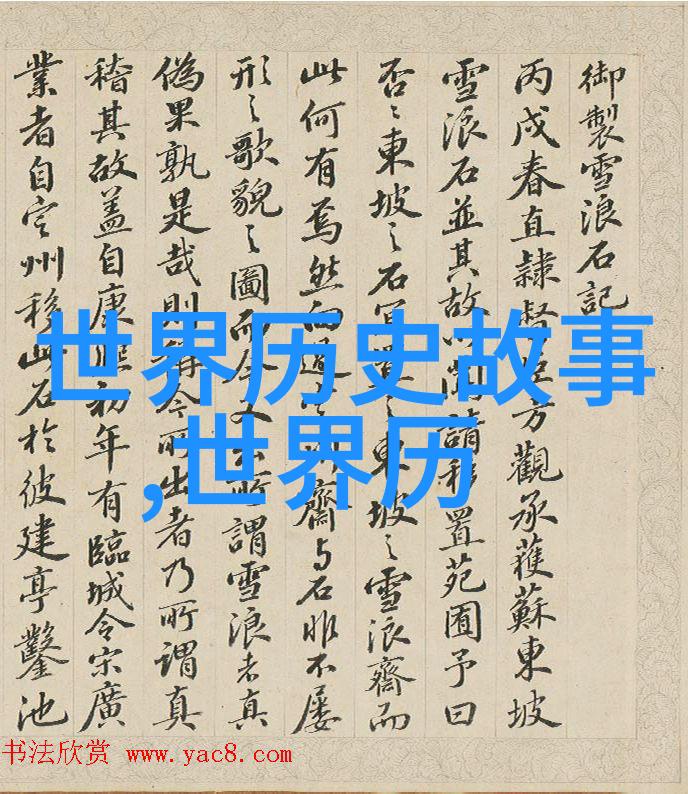 御製雪浪石記
丙戌春直隸督臣方觀承獲蘇東坡
雪浪石並其故以聞請移置苑囿予曰
否〻東坡之石置之東坡之雪浪齋而
此何有焉然向過齋与石非不屢
形之歌貌之圖而今又所謂雪浪者真
偽果孰是哉則今所出者乃所謂真
稽其故盖自康熙初年有臨城令宋廣
業者自定州移此石於彼建亭鑿池
世界历史故事
,世界历
书法欣赏 www.yac8.com